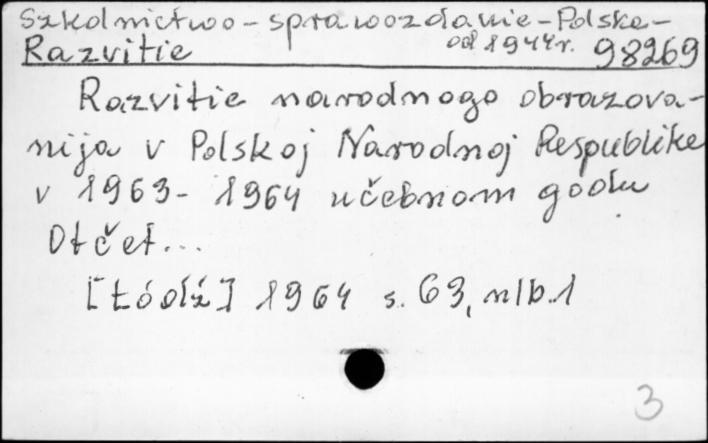 Szkolnictwo - sprawozdanie - Polska -
od 1944 r.
Razvitie 98269
Razvitie narodnogo obrazova-
nija v Polskoj Narodnoj Respublike
v 1963 - 1964 učebnom godu
Otčet...
[Łódź] 1964 s. 63, nlb. 1
3